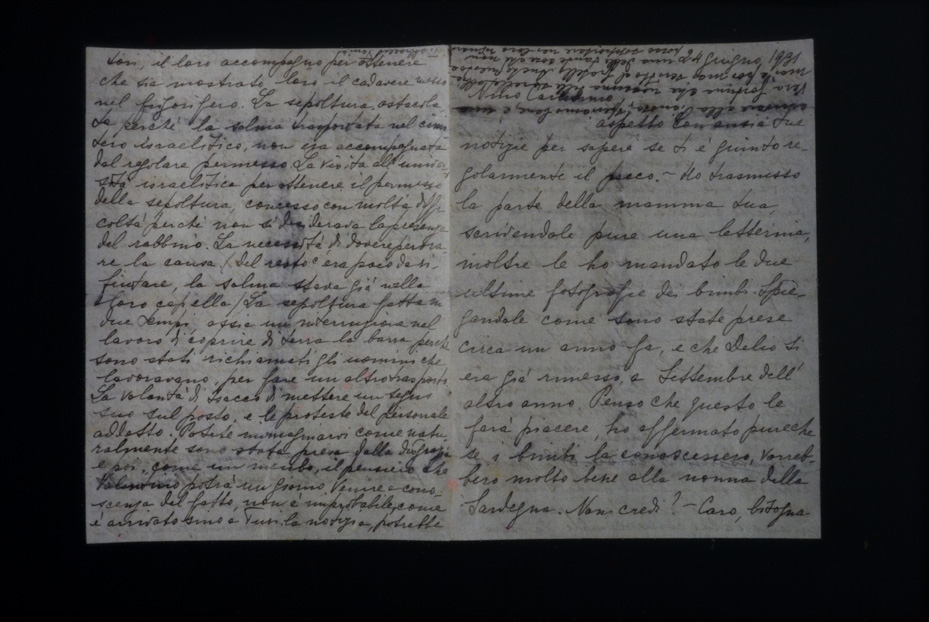 24 Giugno, 1931
Nino Carissimo
aspetto con ansia tue
notizie per sapere se ti è giunto re-
golarmente il pacco. - Ho trasmesso
la parte della mamma tua,
scrivendole pure una letterina,
inoltre le ho mandato le due
ultime fotografie dei bimbi. Spie-
gandole come sono state prese
circa un anno fa, e che Delio si
era già rimesso, a Settembre dell'
altro anno. Penso che questo le
farà piacere, ho affermato pure che
se i bimbi la conoscessero, vorreb-
bero molto bene alla nonna della
Sardegna. Non credi? - Caro, bisogna
tori, il loro accompagno per ottenere
che sia mostrato loro il cadavere messo
nel frigorifero. La sepoltura ostacola-
ta perchè la salma trasportata nel cimi-
tero israelitico, non era accompagnata
dal regolare permesso. La visita all'univer-
sità israelitica per ottenere il permesso
della sepoltura, concesso con molta diffi-
coltà perchè non si desiderava la presenza
del rabbino. La necessità di dovere perora-
re la causa. (Del resto c'era poco da ri-
fiutare, la salma stava già nella
loro cappella) La sepoltura fatta in
due tempi, ossia un'interruzione nel
lavoro di coprire di terra la bara perchè
sono stati richiamati gli uomini che
lavoravano, per fare un altro trasporto.
La volontà di Isacco di mettere un segno
suo sul posto, e le proteste del personale
addetto. Potete immaginarvi come natu-
ralmente sono stata presa dalla disgrazia
e poi, come un incubo, il pensiero che
Valentino potrà un giorno venire a cono-
scenza del fatto, non è improbabile, come
è arrivato sino a Turi la notizia, potrebbe